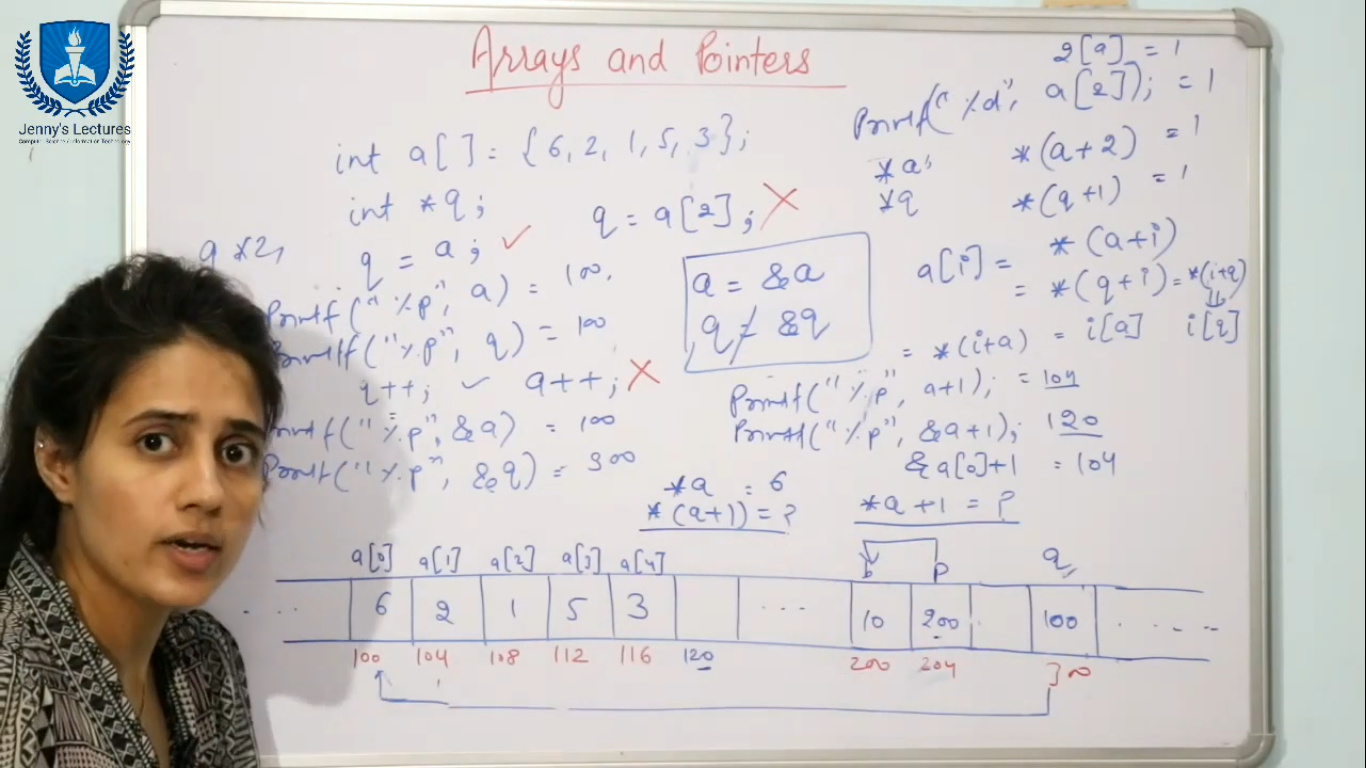 Jenny's Lectures
Arrays and Pointers
int a[] = {6, 2, 1, 5, 3};
int *q;
q = a[2];
q = a; ✓
a = &a
q ≠ &q
printf("%p", a) = 100.
printf("%p", q) = 100
q++; ✓ a++;
printf("%p", &a) = 100
printf("%p", &q) = 300
2[a] = 1
printf("%d", a[2]); = 1
*a, *(a+2) = 1
*q *(q+1) = 1
a[i] = *(a+i)
= *(q+i) = *(i+q)
= *(i+a) = i[a] i[q]
printf("%p", a+1); = 104
printf("%p", &a+1); 120
&a[0]+1 = 104
*a = 6
*(a+1) = ?
*a+1 = ?
a[0] a[1] a[2] a[3] a[4] b p q
6 2 1 5 3 10 200 100
100 104 108 112 116 120 200 204 300